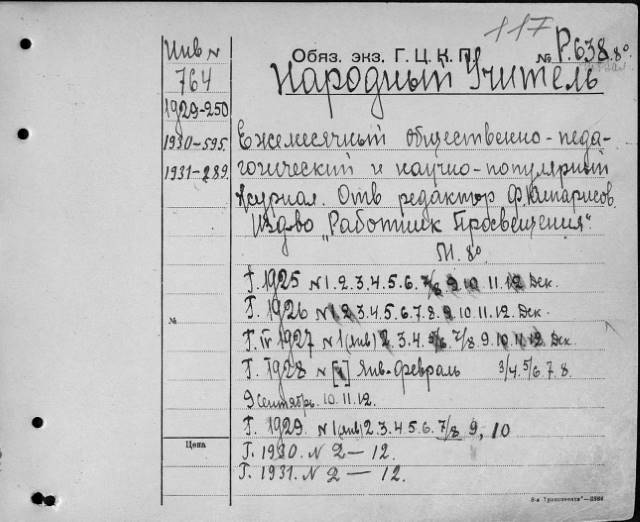 117
Инв №
764
1929-250
1930-595.
1931-289.
Обяз. экз. Г. Ц. К. П. № Р.638.8°
Народный Учитель
Ежемесячный общественно-педа-
гогический и научно-популярный
журнал. Отв редактор
Изд-во "Работник Просвещения".
М. 8°
Г. 1925 N 1.2.3.4.5.6.7/8 9 10 11.12 Дек.
Г. 1926 N 1.2.3.4.5.6.7.8.9 10.11.12. Дек.
№
Г. IV 1927 N 1 (янв) 2.3.4.5/6 7/8 9.10.11.12. Дек
Г. 1928 N [1] Янв.-февраль 3/4.5/6.7.8.
9 Сентябрь. 10.11.12.
Г. 1929. N 1 (янв) 2.3.4.5.6.7/8 9, 10
Цена
Г. 1930. N 2 — 12.
Г. 1931. N 2 — 12.